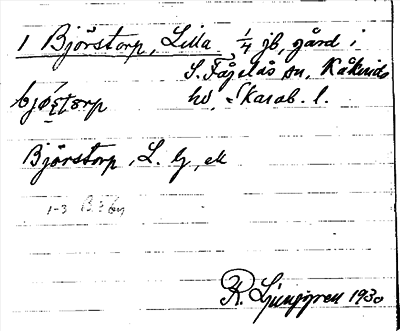 1 Björstorp, Lilla 1/4 jb, gård i
S. Fågelås sn, Kåkinds
hd, Skarab. l.
bjøʂtɔrp
Björstorp, L. G, ek
1-3 B: 3
R. Ljunggren 1930